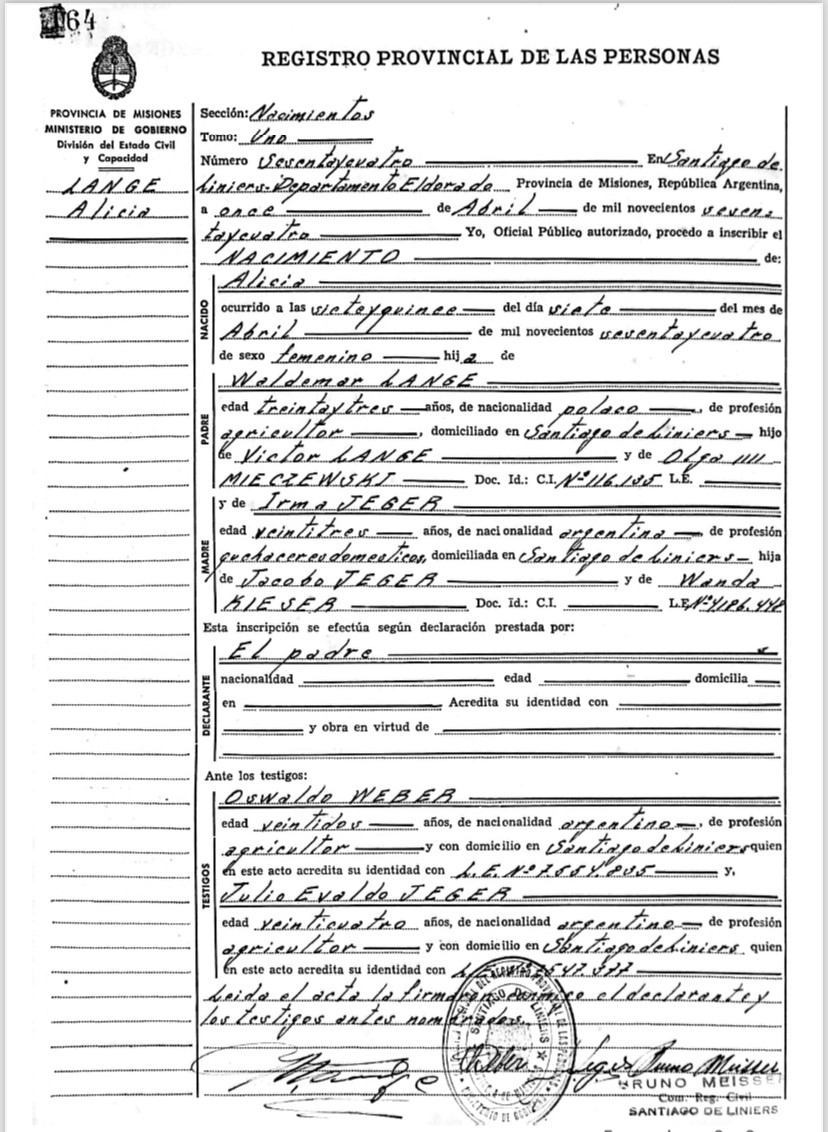 164
REGISTRO PROVINCIAL DE LAS PERSONAS
PROVINCIA DE MISIONES
MINISTERIO DE GOBIERNO
División del Estado Civil
y Capacidad
LANGE
Alicia
Sección: Nacimientos
Tomo: Uno
Número Sesentaycuatro En Santiago de
Liniers-Departamento Eldorado Provincia de Misiones, República Argentina,
a once de Abril de mil novecientos sesen
taycuatro Yo, Oficial Público autorizado, procedo a inscribir el
NACIMIENTO de:
NACIDO
Alicia
ocurrido a las sieteyquince del día siete del mes de
Abril de mil novecientos sesentaycuatro
de sexo femenino hija de
PADRE
Waldemar LANGE
edad treintaytres años, de nacionalidad polaco, de profesión
agricultor, domiciliado en Santiago de Liniers hijo
de Victor LANGE y de Olga
MIECZEWSKI Doc. Id.: C.I. Nº 116.135 L.E.
MADRE
y de Irma JEGER
edad veintitres años, de nacionalidad argentina de profesión
quehaceres domesticos, domiciliada en Santiago de Liniers hija
de Jacobo JEGER y de Wanda
KIESER Doc. Id.: C.I. L.E. Nº 4186.448
Esta inscripción se efectúa según declaración prestada por:
DECLARANTE
El padre
nacionalidad edad domicilia
en Acredita su identidad con
y obra en virtud de
Ante los testigos:
TESTIGOS
Oswaldo WEBER
edad veintidos años, de nacionalidad argentino, de profesión
agricultor y con domicilio en Santiago de Liniers quien
en este acto acredita su identidad con L.E. Nº 7554.835 y,
Julio Evaldo JEGER
edad veinticuatro años, de nacionalidad argentino de profesión
agricultor y con domicilio en Santiago de Liniers quien
en este acto acredita su identidad con 7547.377
Leida el acta la firma el declarante y
los testigos antes
SANTIAGO DE LINIERS
Weber Jeger Bruno Meisser
BRUNO MEISSER
Com. Reg. Civil
SANTIAGO DE LINIERS